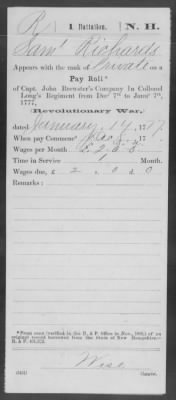 R | 1 Battalion. | N. H.
Sam'l Richards
Appears with the rank of Private on a
Pay Roll*
of Capt. John Brewster's Company in Colonel
Long's Regiment from Decr 7th to Janry 7th,
1777,
Revolutionary War,
dated January 14, 1777.
When pay Commenced
Wages per Month
Time in Service 1 Month.
Wages due, £ 2 s 0 d 0
Remarks:
*From copy (verified in the R. & P. Office in Nov., 1898,) of an
original record borrowed from the State of New Hampshire—
R. & P.
Copyist.